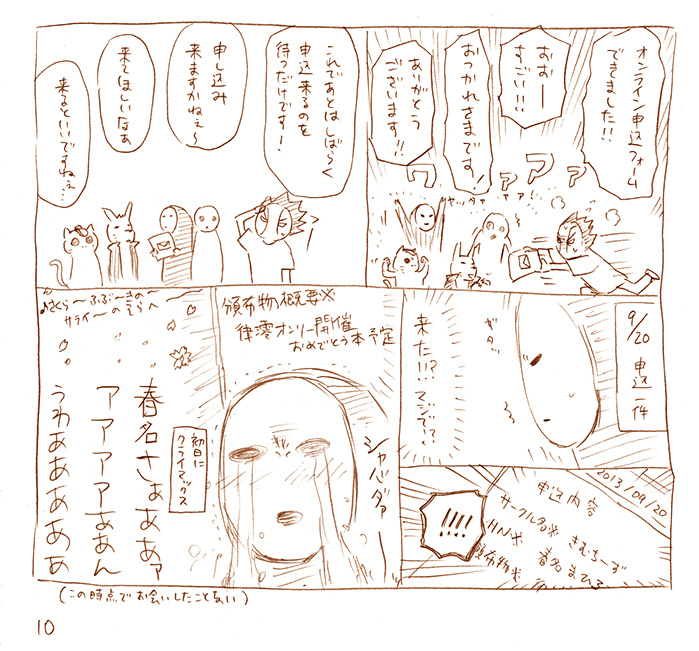 オンライン申込フォーム
できました!!
おおー
すごい!!!
おつかれさまです!
ありがとう
ございます!!
ワァアァ
ヤッタァァァ!
これであとはしばらく
申込来るのを
待つだけです!
申し込み
来ますかねぇ〜
来てほしいなぁ
来るといいですねぇ…
9/20 申込一件
ガタッ
来た!!?
マジで!?
2013/09/20
申込内容
サークル名※ きむちーず
HN※ 春名まひろ
頒布物※
!!!!
頒布物概要※
律澪オンリー開催
おめでとう本予定
シャバダァー
初日に
クライマックス
♪さくら〜ふぶ〜きの〜
サライ〜のそらへ
春名さぁあぁァ
アアアアああん
うわあああああ
(この時点でお会いしたことない)
10